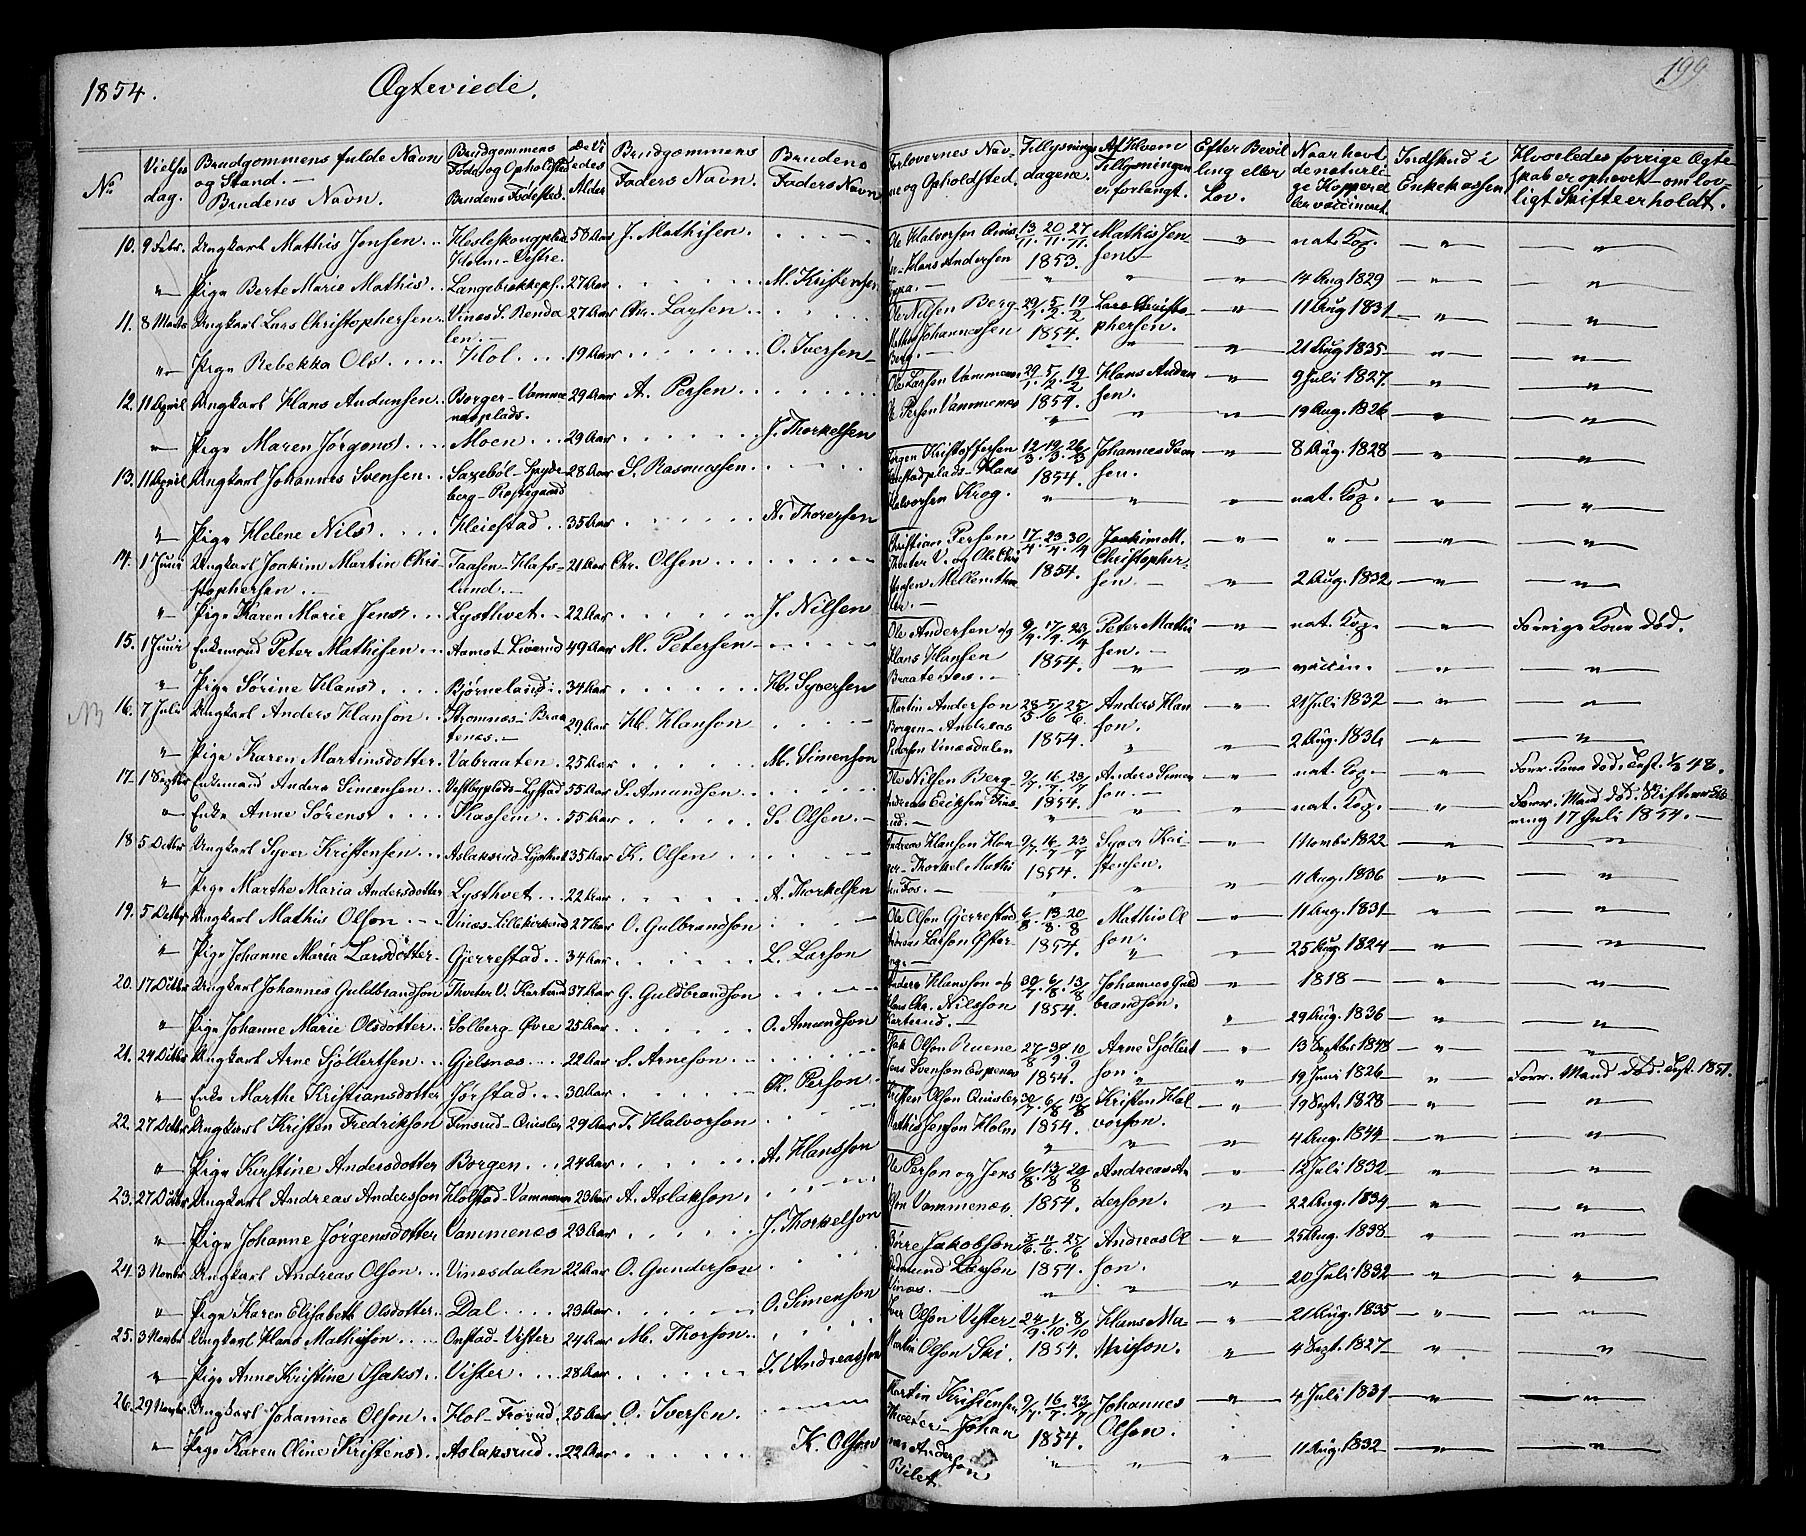 1854. Ægteviede. 199
No Vielses dag. Brudgommens fulde Navn og Stand. — Brudens Navn. Brudgommens Føde og Opholdsted Brudens Fødested. De Vi edes Alder Brudgommens Faders Navn. Brudens Faders Navn Forlovernes Nav- ne og Opholdsted. Tillysnings dagene. Af Hvem Tillysningen er forlangt. Efter Bevil ling eller Lov. Naar havt de naturli ge Kopper el ler vaccineret. Indskud i Enkekassen Hvorledes forrige Ægte skab er ophævet – om lov- ligt Skifte er holdt.
10. 9 Febr. Ungkarl Mathis Jensen 58 Aar J. Mathisen. 13/11. 20/11. 27/11. 1853. Mathis Jen sen nat. Kop.
" Pige Berte Marie Mathisd. 27 Aar M. Kristensen 14 Aug 1829
11. 8 Marts Ungkarl Lars Christophersen Vinæs S. Renda len. 27 Aar Chr. Larsen Ole Nilsen Berg 29/1. 5/2. 19/2 1854. Lars Christo phersen. 11 Aug 1831
" Pige Rebekka Olsd. Hol 19 Aar O. Iversen Johannessen Berg. 21 Aug 1835
12. 11 April Ungkarl Hans Andersen Borger-Vamme næsplads. 29 Aar A. Persen Ole Larsen Vammenæs 29/1. 5/2. 19/2 1854. Hans Ander sen. 9 Juli 1827
" Pige Maren Jørgensd. Moen 29 Aar J. Thorkelsen Ole Persen Vammenæs 19 Aug. 1826
13. 11 April Ungkarl Johannes Svensen Saxebøl - Spyde berg - 28 Aar S. Rasmussen Jørgen Kristoffersen plads - Hans Halvorsen Krog. 12/3. 19/3. 26/3 1854. Johannes Sven sen. 8 Aug. 1828
" Pige Helene Nilsd. Heiestad 35 Aar N. Thoresen nat. Kop.
14. 1 Juni Ungkarl Joakim Martin Chri stophersen Taasen - Hafs lund. 21 Aar Chr. Olsen Christian Persen Thveter V. og Ole Chri 17/4. 23/4. 30/4 1854. Joakim M. Christopher- sen. "
" Pige Karen Marie Jensd. Lysthvet 22 Aar J. Nilsen 2 Aug. 1832
15. 1 Juni Enkemand Peter Mathisen Aamot - 49 Aar M. Petersen Ole Andersen og Hans Hansen Braatenæs. 9/4. 17/4. 23/4 1854. Peter Mathi sen. nat. Kop. Forrige Kone død.
" Pige Sørine Hansd. Bjørneland 34 Aar H. Syversen vaccin.
NB 16. 7 Juli Ungkarl Anders Hanson Strømnæs - Braa tenæs. 29 Aar H. Hanson Martin Anderson Borgen - Andreas Pederson Vinæsdalen 28/5. 5/6. 25/6 1854. Anders Han son. 21 Juli 1832
" Pige Karen Martinsdotter Vabraaten 25 Aar M. Simenson 2 Aug. 1836
17. 1 Septbr Enkemand Anders Simensen Vestbyplads - Lystad 55 Aar S. Amundsen Ole Nilsen Berg Andreas Eriksen 9/7. 16/7. 23/7 1854. Anders Simen son. nat. Kop. Forr. Kone død. 48.
" Enke Anne Sørensd. Kassem 55 Aar S. Olsen nat. Kop. Forr. Mand død. 17 Juli 1854.
18. 5 Octbr Ungkarl Syver Kristensen Aslaksrud - Lysthvet 35 Aar K. Olsen Andreas Hanson - Thorkel Mathi sen Fos. 9/7. 16/7. 23/7 1854. Syver Kri stensen. 1 Nombr 1822
" Pige Marthe Maria Andersdotter Lysthvet 22 Aar A. Thorkelsen 11 Aug. 1836
19. 5 Octbr Ungkarl Mathis Olson Vinæs - Lillekirkerud 27 Aar O. Gulbrandson Ole Olson Gjerrestad Andreas Larson 6/8. 13/8. 20/8 1854. Mathis Ol son. 11 Aug. 1831
" Pige Johanne Maria Larsdotter Gjerrestad 34 Aar L. Larson 25 Aug. 1824
20. 17 Octbr Ungkarl Johannes Guldbrandson Thveter V. Karterud 37 Aar G. Guldbrandson Anders Hansson og Hans Chr. Nilsson Karterud. 30/7. 6/8. 13/8 1854. Johannes Guld brandson. 1818
" Pige Johanne Marie Olsdotter Solberg Øvre 25 Aar O. Amundson 29 Aug. 1836
21. 24 Octbr Ungkarl Arne Sjøllertsen Gjelsnæs 22 Aar S. Arneson Olson Ruene Jens Svenson 27/8. 3/9. 10/9 1854. Arne Sjøllert son. 13 Septbr 1848
" Enke Marthe Kristiansdotter Jørstad 30 Aar K. Person 19 Juni 1826 Forr. Mand død. 1851.
22. 27 Octbr Ungkarl Kristen Fredrikson Finsrud - Quisler 29 Aar F. Halvorson Kristen Olson Quisler Mathis Jenson Holm 30/7. 6/8. 13/8 1854. Kristen Hal vorson. 19 Sept. 1828
" Pige Kirstine Andersdotter Borgen 24 Aar A. Hansson 4 Aug. 1844
23. 27 Octbr Ungkarl Andreas Andersson Holstad - Vammenæs 23 Aar A. Aslakson Ole Person og Jens Vammenæs 6/8. 13/8. 20/8 1854. Andreas An derson. 12 Juli 1832
" Pige Johanne Jørgensdotter Vammenæs 23 Aar J. Thorkelson 22 Aug. 1834
24. 3 Novbr Ungkarl Andreas Olson Vinæsdalen 22 Aar O. Gunderson Børre Jakobson Larson Vinæs. 5/6. 11/6. 25/6 1854. Andreas Ol son. 25 Aug. 1838
" Pige Karen Elisabeth Olsdotter Dal 23 Aar O. Simenson 20 Juli 1832
25. 3 Novbr Ungkarl Hans Mathison Onstad - Vister 24 Aar M. Thorson Iver Olson Vister Martin Olson Ski. 24/9. 1/10. 8/10 1854. Hans Ma thison. 21 Aug. 1835
" Pige Anne Kristine Isaksd. Vister 28 Aar I. Andreasson 4 Sept. 1827
26. 29 Novbr. Ungkarl Johannes Olson Hol - Frørud 25 Aar O. Iversen Martin Kristensen Thveter - Johan nes Anderson Bilet 9/7. 16/7. 23/7 1854. Johannes Olson. 4 Juli 1831
" Pige Karen Oline Kristensd. Aslaksrud 22 Aar K. Olson 11 Aug. 1832